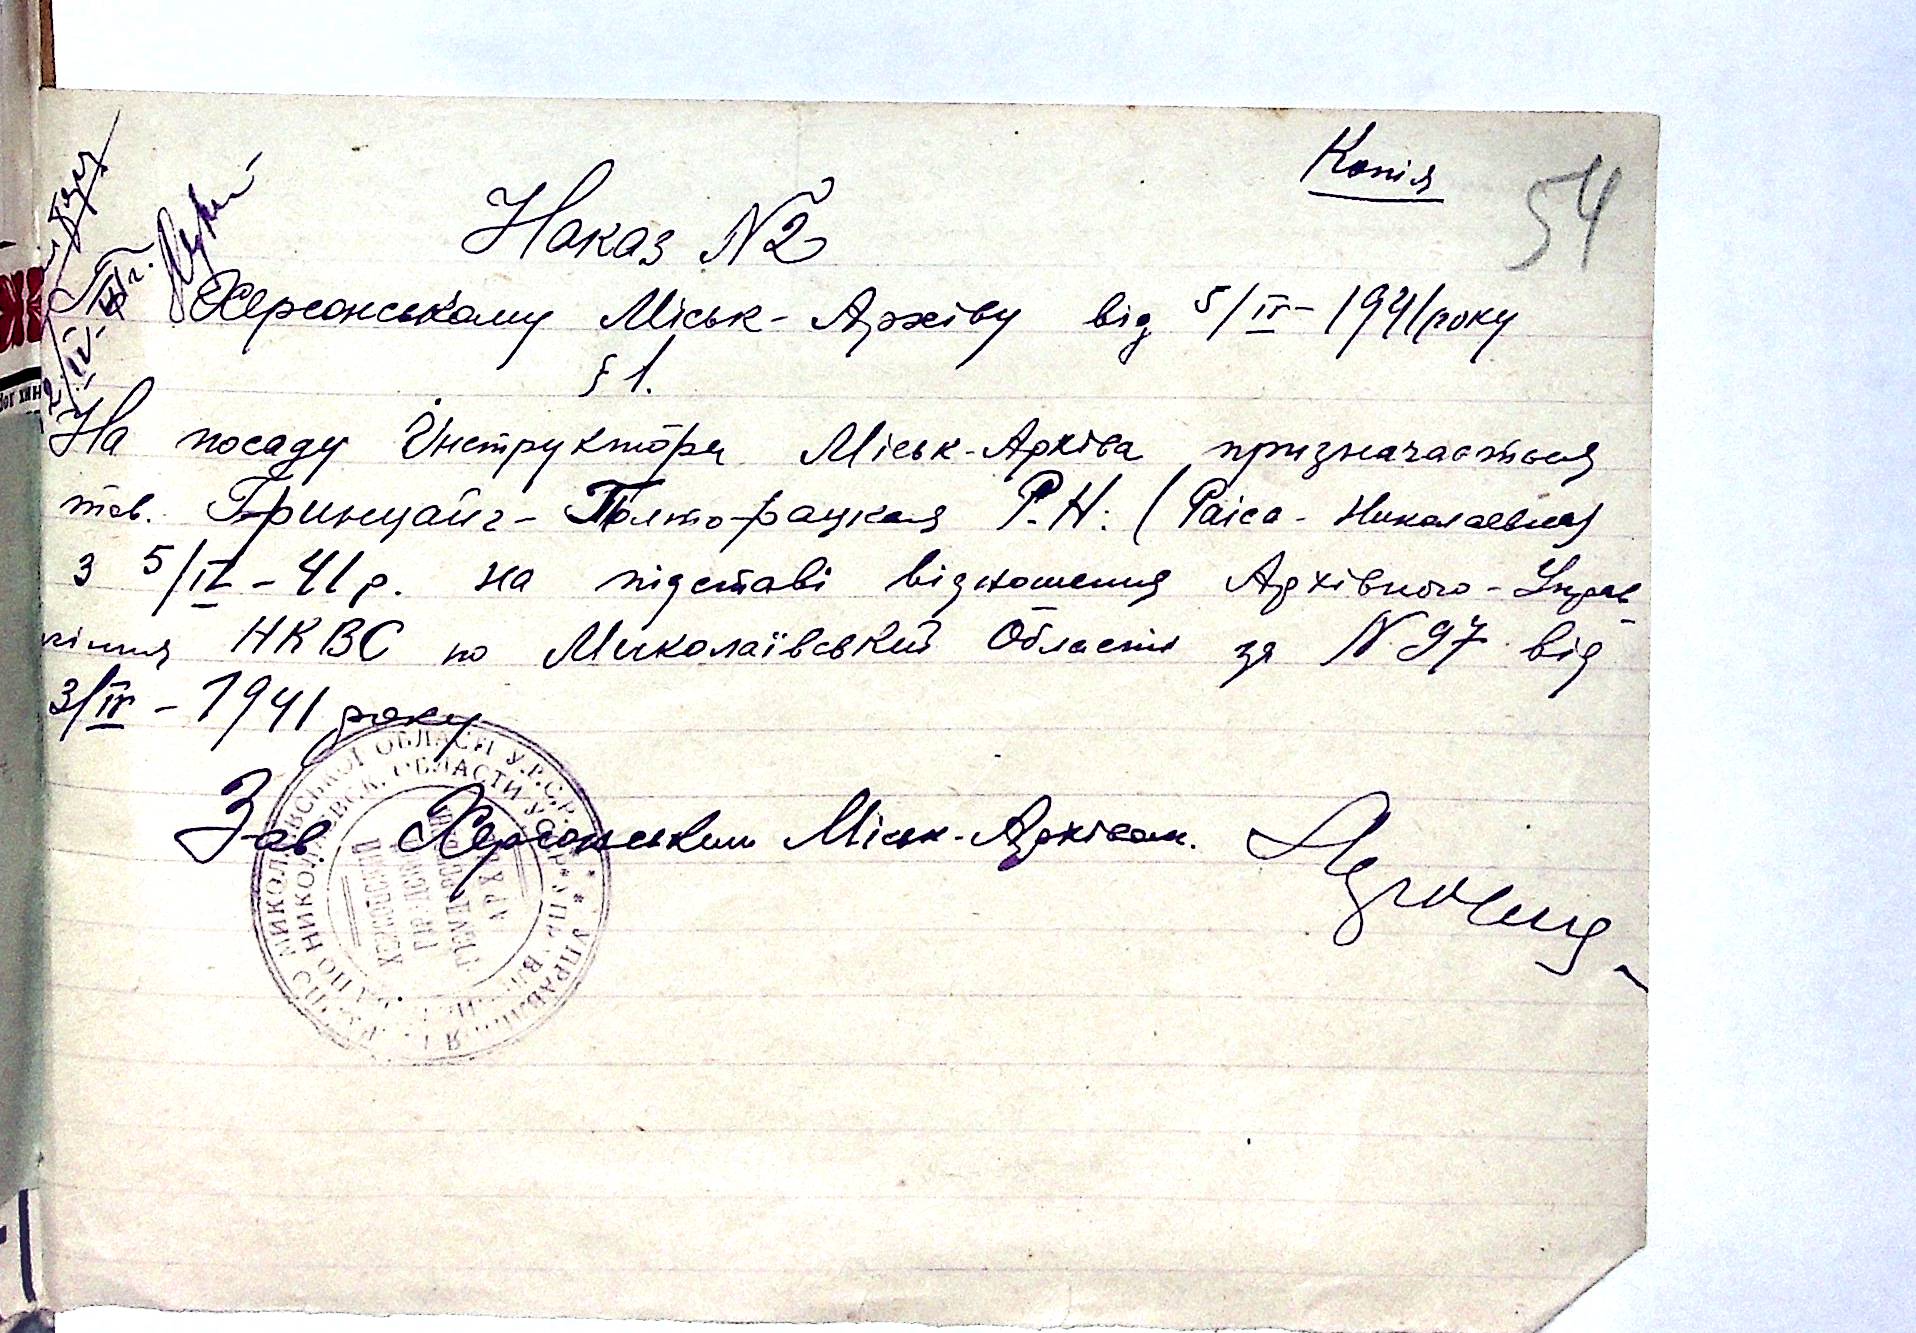 Копія
54
Наказ №2
Херсонському Міськ-Архіву від 5/IV-1941 року
§ 1.
На посаду Інструктора Міськ-Архіва призначається
тов. Гринцайг-Полто-рацкая Р.Н. (Раіса-Николаевна)
з 5/IV-41р. на підставі відношення Архівного-Управ
ління НКВС по Миколаївський Області за №97 від
3/IV-1941 року
Зав Херсонським Міськ-Архівом.
МИКОЛАЇВСЬКОЇ ОБЛАСТИ У.Р.С.Р. * * УПРАВЛІННЯ
ПО НИКОЛАЕВСК. ОБЛАСТИ УССР